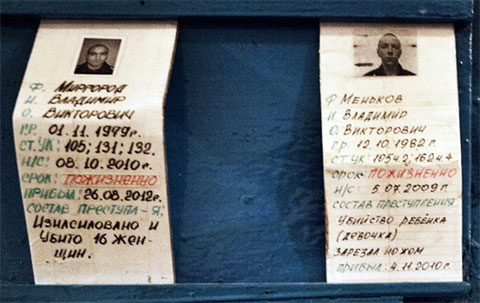 Ф. МИРГОРОД
И. ВЛАДИМИР
О. ВИКТОРОВИЧ
Г.Р. 01.11.1979г.
СТ.УК: 105; 131; 132.
Н/С: 08.10.2010г.
СРОК: ПОЖИЗНЕННО
ПРИБЫЛ: 26.08.2012г.
СОСТАВ ПРЕСТУПЛ-Я:
ИЗНАСИЛОВАНО И
УБИТО 16 ЖЕН-
ЩИН.
Ф МЕНЬКОВ
И. ВЛАДИМИР
О. ВИКТОРОВИЧ
Г.Р. 12.10.1982г.
СТ.УК: 105Ч2; 162Ч4
СРОК: ПОЖИЗНЕННО
Н/С: 5.07.2009г.
СОСТАВ ПРЕСТУПЛЕНИЯ
УБИЙСТВО РЕБЁНКА
(ДЕВОЧКА)
ЗАРЕЗАЛ НОЖОМ
ПРИБЫЛ: 4.11.2010г.